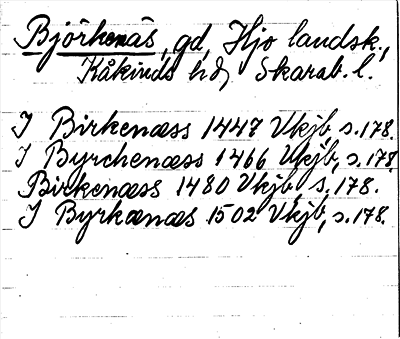 Björkenäs, gd, Hjo landsk.,
Kåkinds hd, Skarab. l.
I Birkenæss 1447 Vkjb, s. 178.
I Byrchenæss 1466 Vkjb, s. 178.
Birkenæss 1480 Vkjb, s. 178.
I Byrkænæs 1502 Vkjb, s. 178.